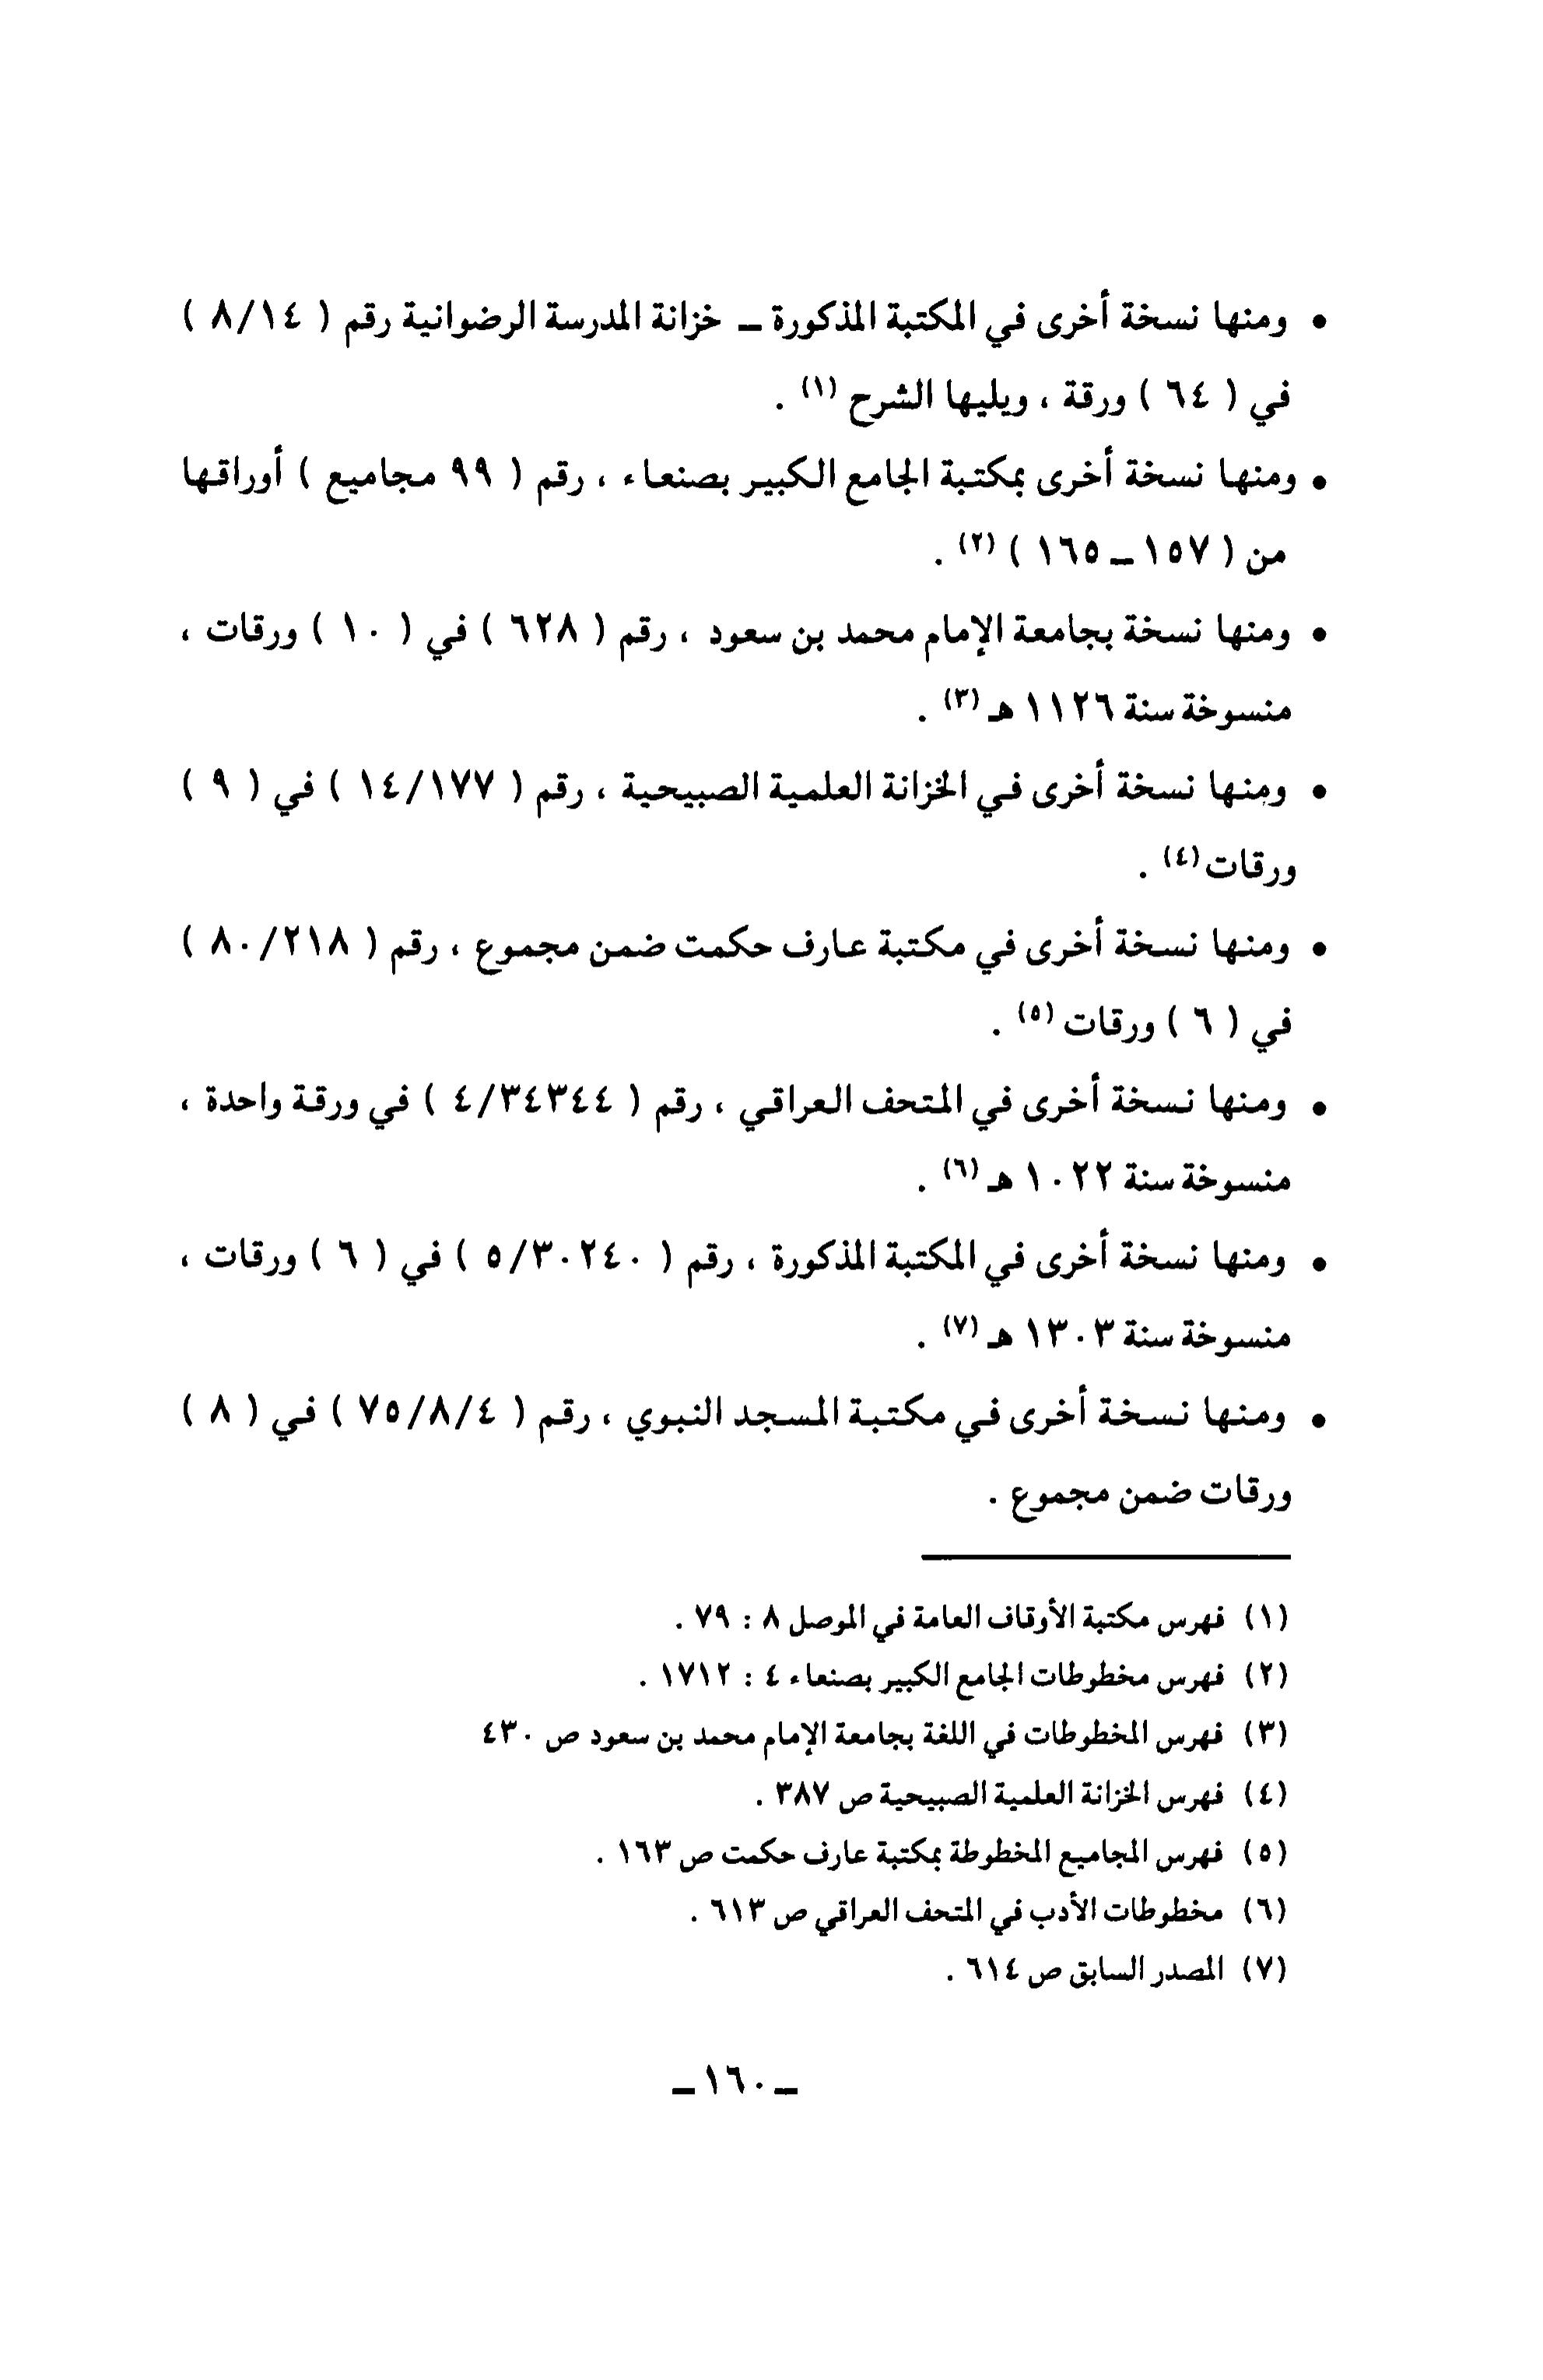 • ومنها نسخة أخرى في المكتبة المذكورة ـ خزانة المدرسة الرضوانية رقم ( ٨/١٤ )
في ( ٦٤ ) ورقة ، ويليها الشرح (١) .
• ومنها نسخة أخرى بمكتبة الجامع الكبير بصنعاء ، رقم ( ٩٩ مجاميع ) أوراقها
من ( ١٥٧ ـ ١٦٥ ) (٢) .
• ومنها نسخة بجامعة الإمام محمد بن سعود ، رقم ( ٦٢٨ ) في ( ١٠ ) ورقات ،
منسوخة سنة ١١٢٦ هـ (٣) .
• ومنها نسخة أخرى في الخزانة العلمية الصبيحية ، رقم ( ١٤/١٧٧ ) في ( ٩ )
ورقات (٤) .
• ومنها نسخة أخرى في مكتبة عارف حكمت ضمن مجموع ، رقم ( ٨٠/٢١٨ )
في ( ٦ ) ورقات (٥) .
• ومنها نسخة أخرى في المتحف العراقي ، رقم ( ٤/٣٤٣٤٤ ) في ورقة واحدة ،
منسوخة سنة ١٠٢٢ هـ (٦) .
• ومنها نسخة أخرى في المكتبة المذكورة ، رقم ( ٥/٣٠٢٤٠ ) في ( ٦ ) ورقات ،
منسوخة سنة ١٣٠٣ هـ (٧) .
• ومنها نسخة أخرى في مكتبة المسجد النبوي ، رقم ( ٧٥/٨/٤ ) في ( ٨ )
ورقات ضمن مجموع .
(١) فهرس مكتبة الأوقاف العامة في الموصل ٨ : ٧٩ .
(٢) فهرس مخطوطات الجامع الكبير بصنعاء ٤ : ١٧١٢ .
(٣) فهرس المخطوطات في اللغة بجامعة الإمام محمد بن سعود ص ٤٣٠
(٤) فهرس الخزانة العلمية الصبيحية ص ٣٨٧ .
(٥) فهرس المجاميع المخطوطة بمكتبة عارف حكمت ص ١٦٣ .
(٦) مخطوطات الأدب في المتحف العراقي ص ٦١٣ .
(٧) المصدر السابق ص ٦١٤ .
ـ ١٦٠ ـ